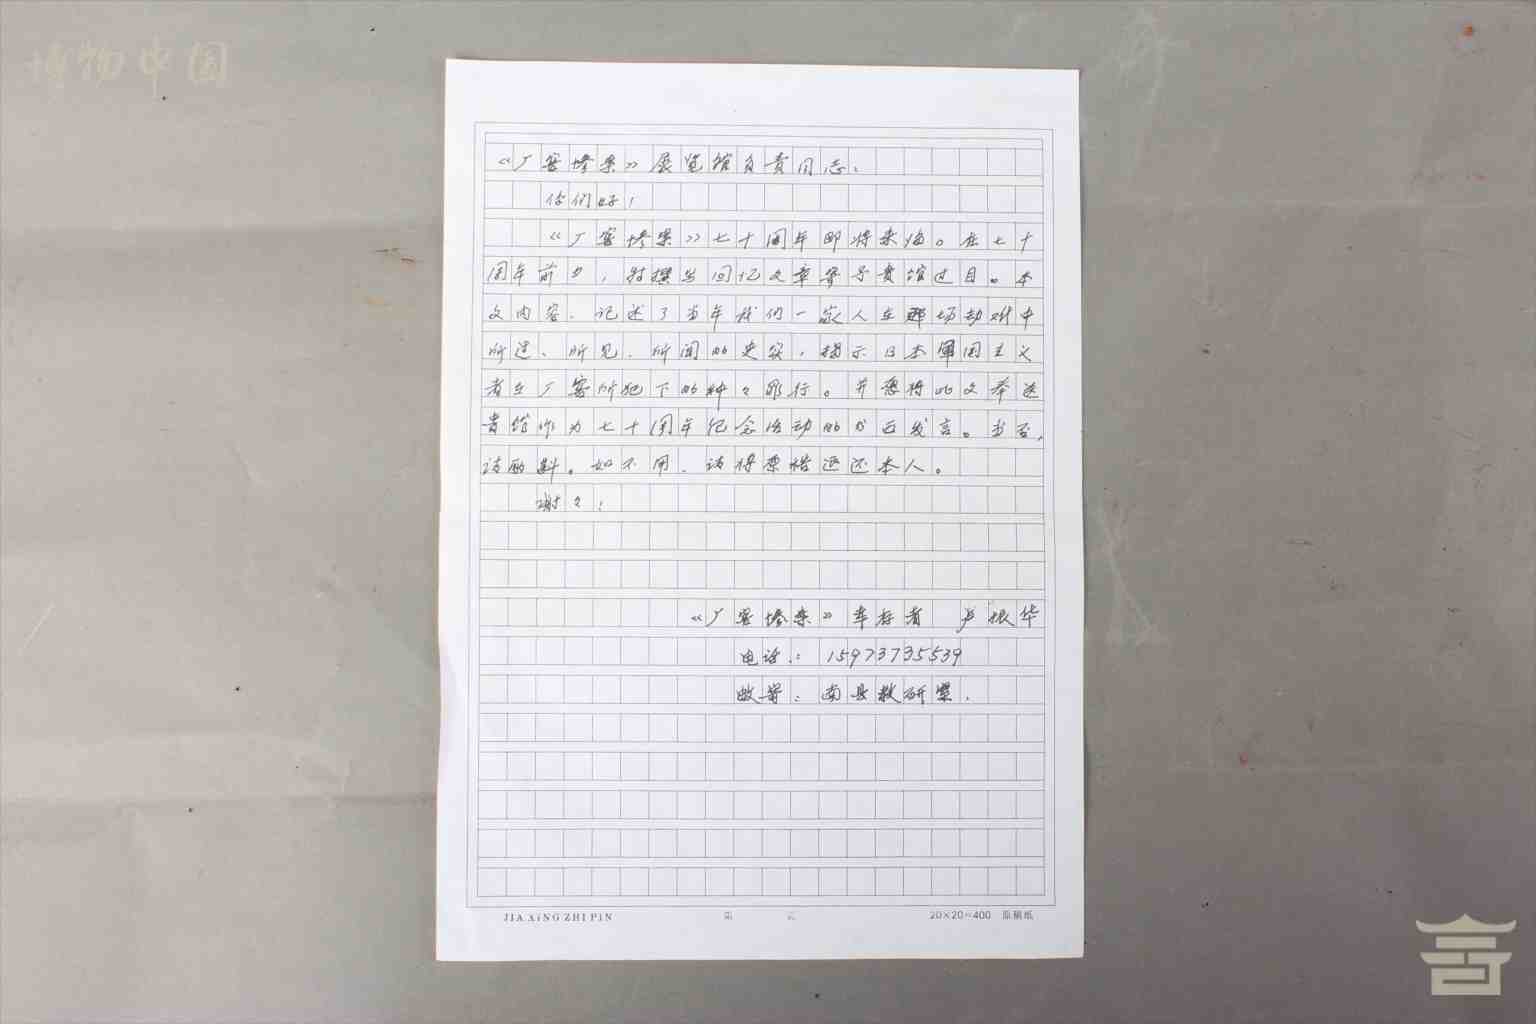 博物中国
《厂窖惨案》展览馆负责同志：
你们好！
《厂窖惨案》七十周年即将来临。在七十
周年前夕，特撰写回忆文章寄予贵馆过目。本
文内容、记述了当年我们一家人在那场劫难中
所遭、所见、所闻的史实，揭示日本军国主义
者在厂窖所犯下的种々罪行。并想将此文奉送
贵馆作为七十周年纪念活动的书面发言。当否，
请酌斟。如不用、请将原稿退还本人。
谢々！
《厂窖惨案》幸存者 卢振华
电话：15973735539
邮寄：南县教研室．
JIA XING ZHI PIN 第 页 20×20=400 原稿纸